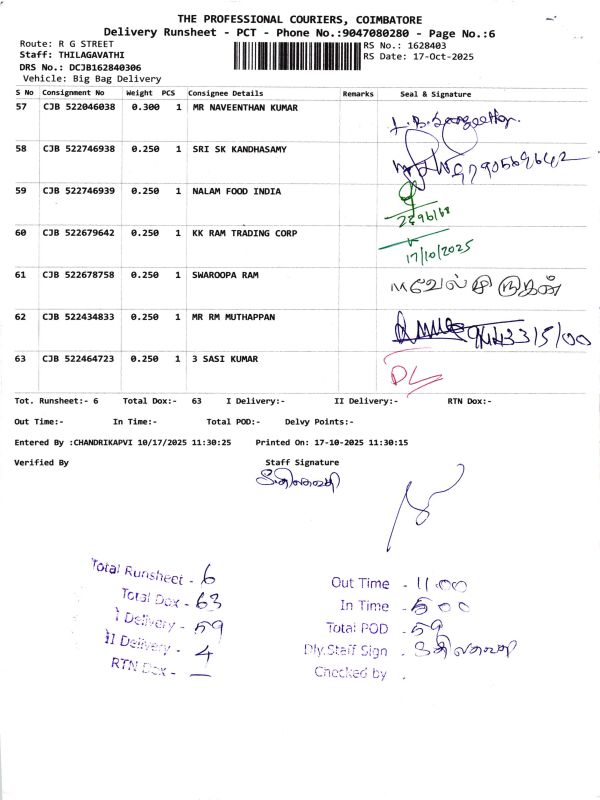 THE PROFESSIONAL COURIERS, COIMBATORE
Delivery Runsheet - PCT - Phone No.:9047080280 - Page No.:6
Route: R G STREET
RS No.: 1628403
Staff: THILAGAVATHI
RS Date: 17-Oct-2025
DRS No.: DCJB162840306
Vehicle: Big Bag Delivery
S No Consignment No Weight PCS Consignee Details Remarks Seal & Signature
57 CJB 522046038 0.300 1 MR NAVEENTHAN KUMAR
58 CJB 522746938 0.250 1 SRI SK KANDHASAMY 9790569642
59 CJB 522746939 0.250 1 NALAM FOOD INDIA
60 CJB 522679642 0.250 1 KK RAM TRADING CORP 17/10/2025
61 CJB 522678758 0.250 1 SWAROOPA RAM
62 CJB 522434833 0.250 1 MR RM MUTHAPPAN
63 CJB 522464723 0.250 1 3 SASI KUMAR DL
Tot. Runsheet:- 6 Total Dox:- 63 I Delivery:- II Delivery:- RTN Dox:-
Out Time:- In Time:- Total POD:- Delvy Points:-
Entered By :CHANDRIKAPVI 10/17/2025 11:30:25 Printed On: 17-10-2025 11:30:15
Verified By Staff Signature
Total Runsheet - 6
Total Dox - 63
I Delivery - 59
II Delivery - 4
RTN Dox - —
Out Time - 11.00
In Time - 5 00
Total POD - 59
Dly.Staff Sign -
Checked by -